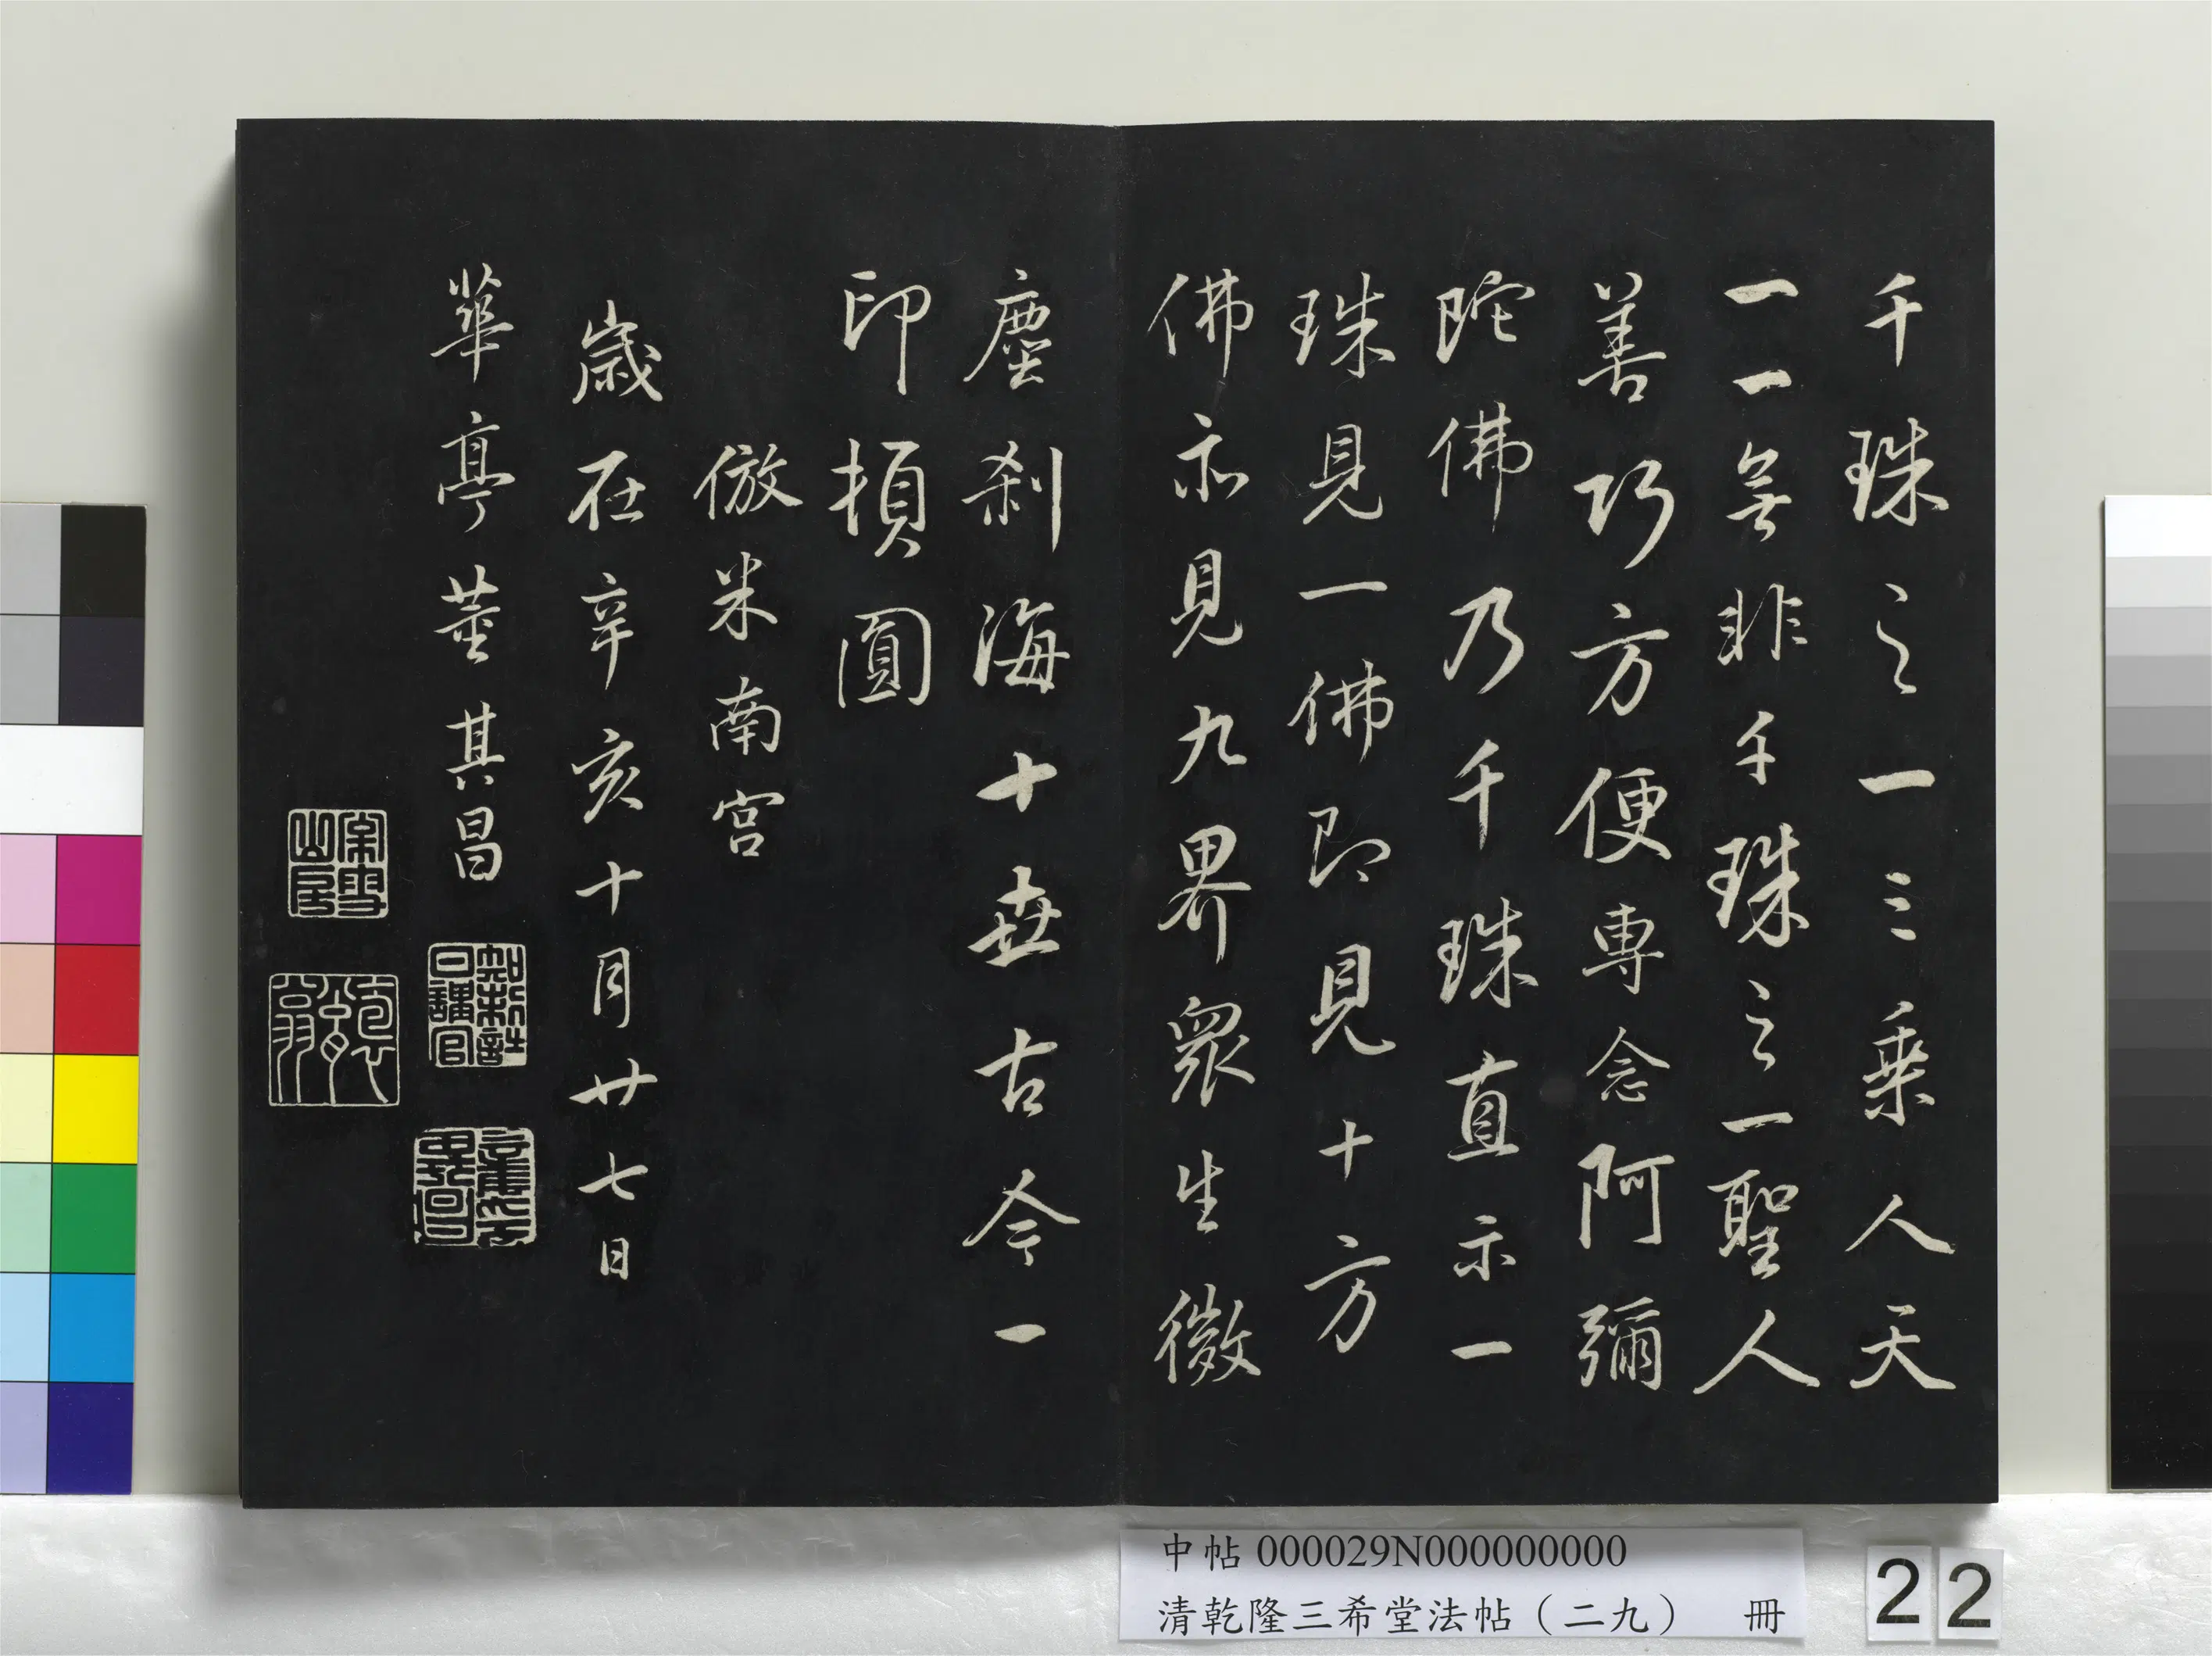 千珠之一三乘人天
一一無非千珠之一聖人
善巧方便專念阿彌
陀佛乃千珠直示一
珠見一佛即見十方
佛亦見九界眾生微
塵剎海十世古今一
印頓圓
倣米南宮
歲在辛亥十月廿七日
華亭董其昌
知制誥日講官
董其昌
中帖000029N000000000
清乾隆三希堂法帖（二九） 冊
22